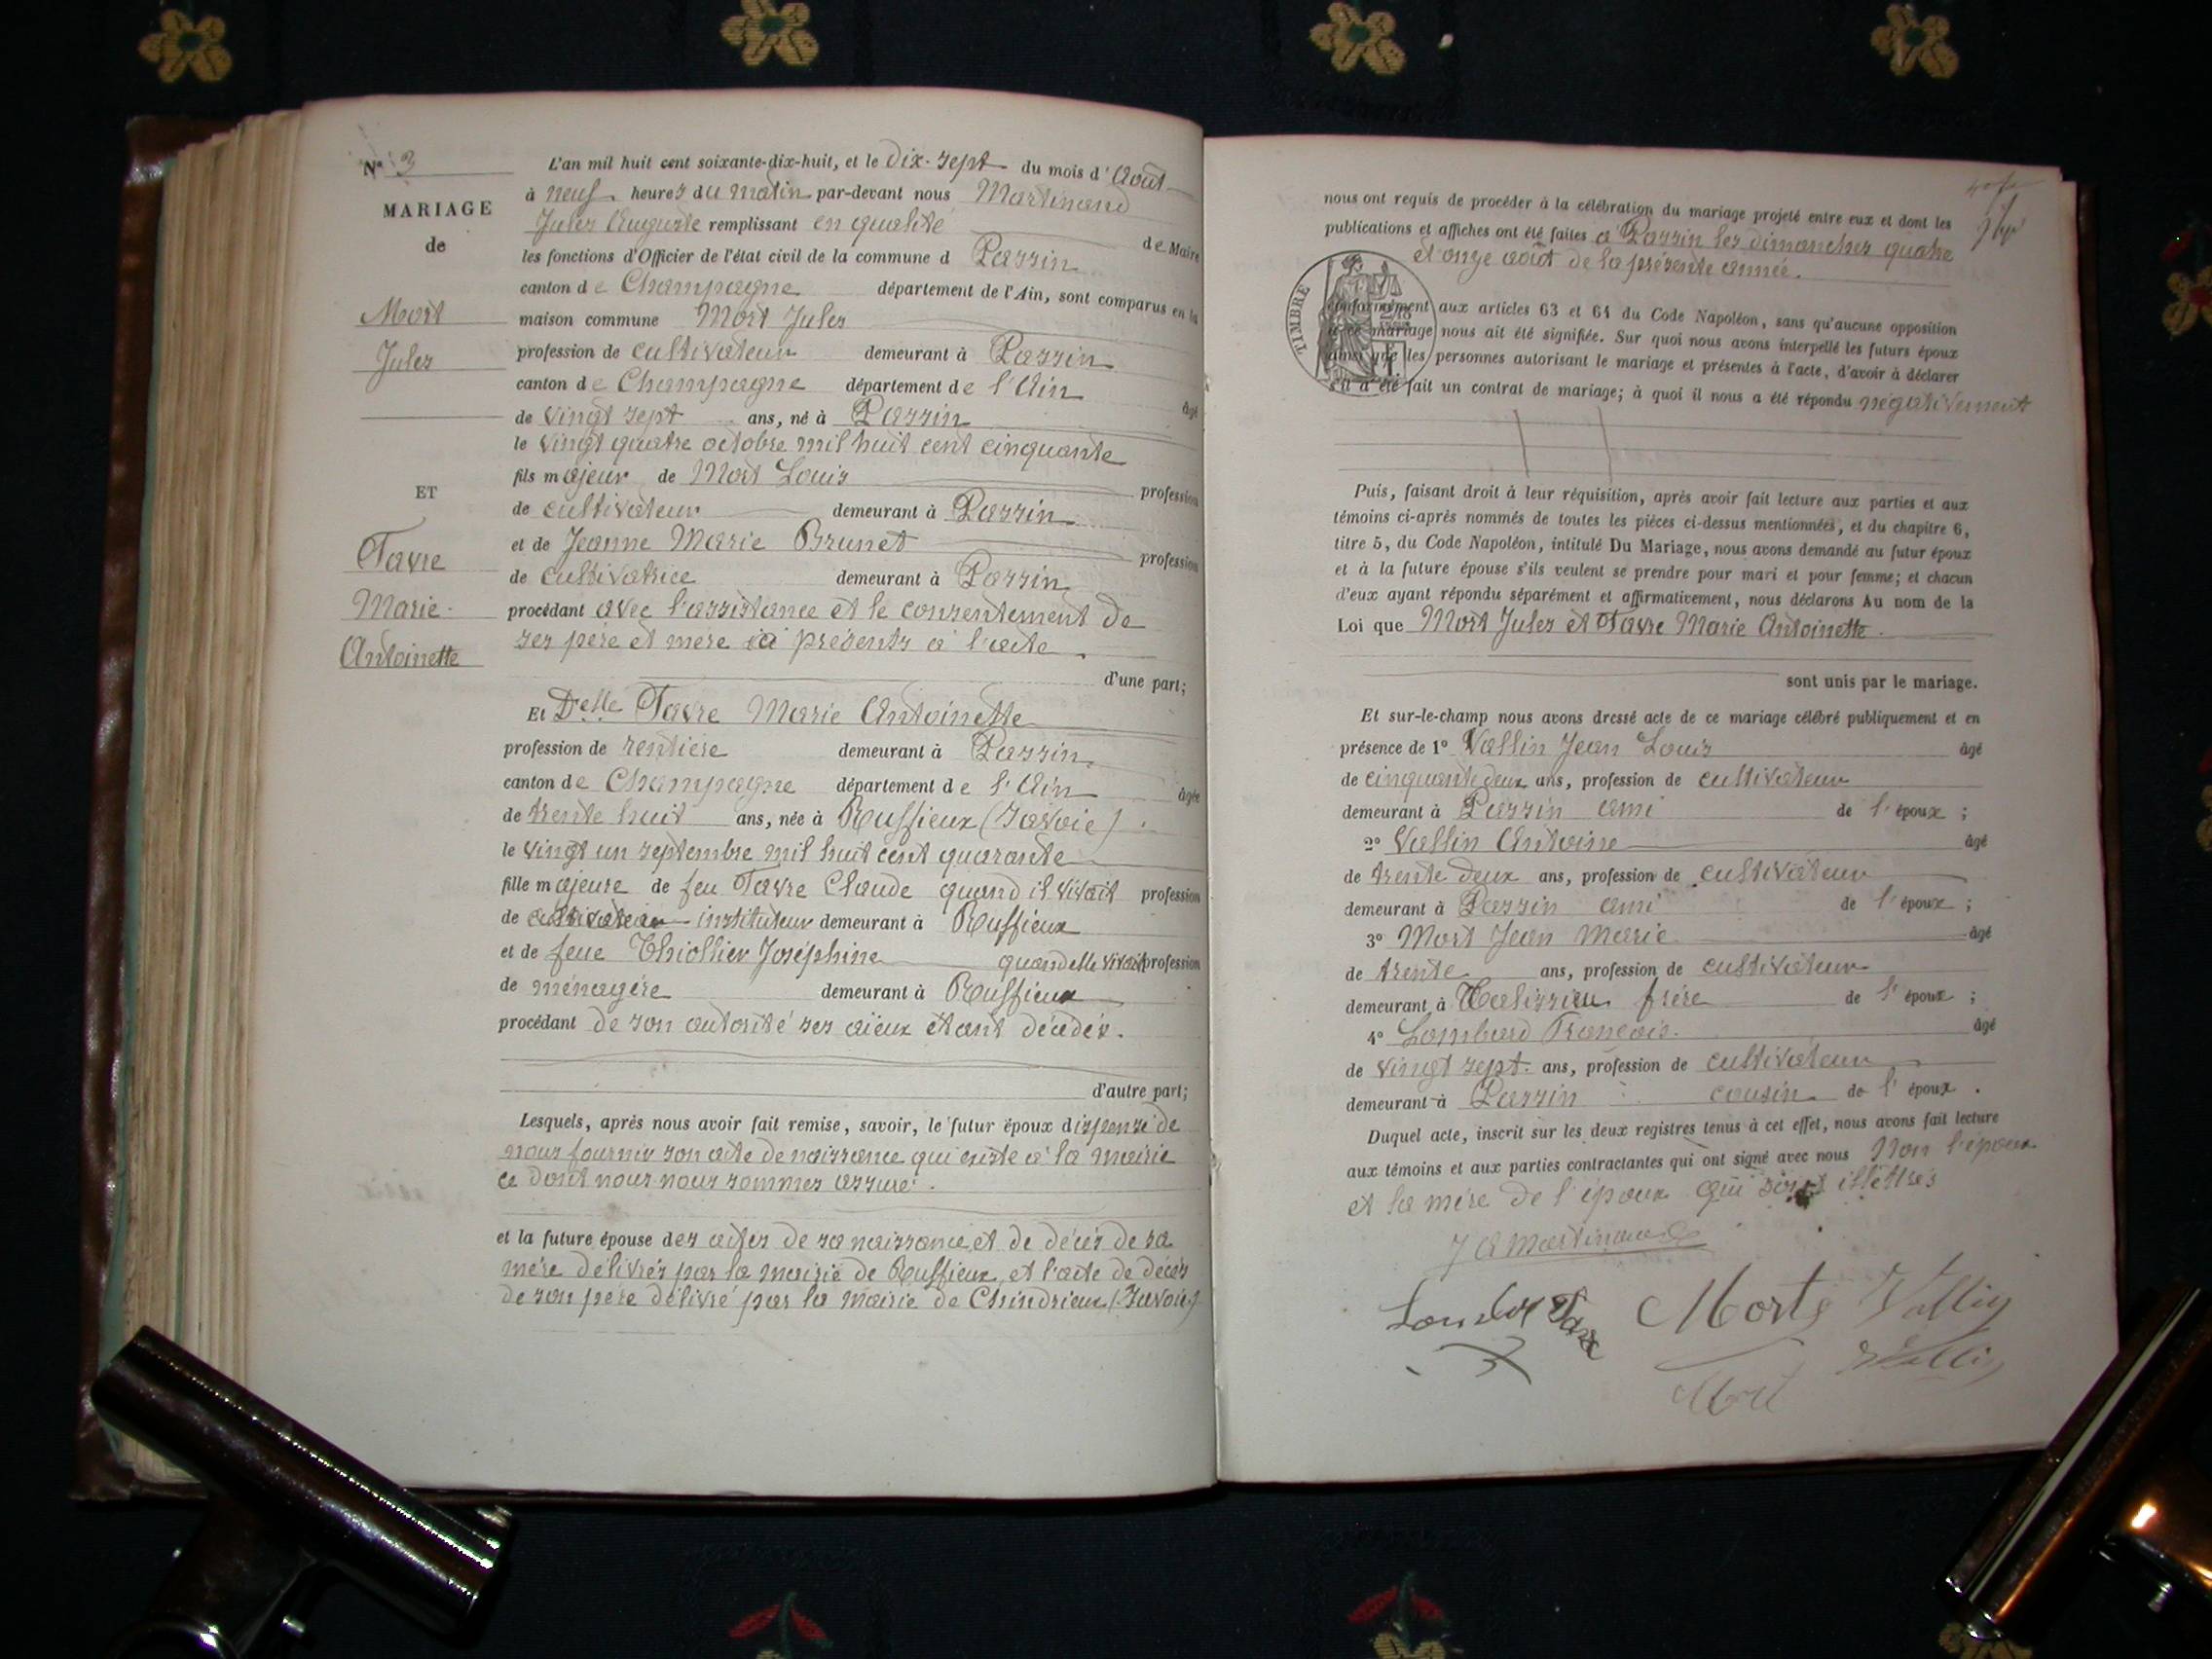 N° 3
MARIAGE
de
Mort
Jules
ET
Favre
Marie
Antoinette
L'an mil huit cent soixante-dix-huit, et le dix-sept du mois d'Août
à neuf heures du matin par-devant nous Martinand
Jules Auguste remplissant en qualité de Maire
les fonctions d'Officier de l'état civil de la commune d Passin
canton de Champagne département de l'Ain, sont comparus en la
maison commune Mort Jules
profession de cultivateur demeurant à Passin
canton de Champagne département de l'Ain âgé
de vingt sept ans, né à Passin
le vingt quatre octobre mil huit cent cinquante
fils majeur de Mort Louis profession
de cultivateur demeurant à Passin
et de Jeanne Marie Brunet profession
de cultivatrice demeurant à Passin
procédant avec l'assistance et le consentement de
ses père et mère ici présents à l'acte.
d'une part;
Et Delle Favre Marie Antoinette
profession de rentière demeurant à Passin
canton de Champagne département de l'Ain âgée
de trente huit ans, née à Ruffieux (Savoie)
le vingt un septembre mil huit cent quarante
fille majeure de feu Favre Claude quand il vivait profession
de cultivateur instituteur demeurant à Ruffieux
et de feue Thiollier Joséphine quand elle vivait profession
de ménagère demeurant à Ruffieux
procédant de son autorité ses aïeux étant décédés.
d'autre part;
Lesquels, après nous avoir fait remise, savoir, le futur époux dispensé de
nous fournir son acte de naissance qui existe à la mairie
ce dont nous nous sommes assuré.
et la future épouse des actes de sa naissance et de décès de sa
mère délivrés par la mairie de Ruffieux, et l'acte de décès
de son père délivré par la mairie de Chindrieux (Savoie)
nous ont requis de procéder à la célébration du mariage projeté entre eux et dont les
publications et affiches ont été faites à Passin les dimanches quatre
et onze août de la présente année.
TIMBRE
conformément aux articles 63 et 64 du Code Napoléon, sans qu'aucune opposition
à ce mariage nous ait été signifiée. Sur quoi nous avons interpellé les futurs époux
ainsi que les personnes autorisant le mariage et présentes à l'acte, d'avoir à déclarer
s'il a été fait un contrat de mariage; à quoi il nous a été répondu négativement
Puis, faisant droit à leur réquisition, après avoir fait lecture aux parties et aux
témoins ci-après nommés de toutes les pièces ci-dessus mentionnées, et du chapitre 6,
titre 5, du Code Napoléon, intitulé Du Mariage, nous avons demandé au futur époux
et à la future épouse s'ils veulent se prendre pour mari et pour femme; et chacun
d'eux ayant répondu séparément et affirmativement, nous déclarons Au nom de la
Loi que Mort Jules et Favre Marie Antoinette
sont unis par le mariage.
Et sur-le-champ nous avons dressé acte de ce mariage célébré publiquement et en
présence de 1° Vallin Jean Louis âgé
de cinquante deux ans, profession de cultivateur
demeurant à Passin ami de l'époux ;
2° Vallin Antoine âgé
de trente deux ans, profession de cultivateur
demeurant à Passin ami de l'époux ;
3° Mort Jean Marie âgé
de trente ans, profession de cultivateur
demeurant à Talissieu frère de l'époux ;
4° Lombard François âgé
de vingt sept ans, profession de cultivateur
demeurant à Passin cousin de l'époux .
Duquel acte, inscrit sur les deux registres tenus à cet effet, nous avons fait lecture
aux témoins et aux parties contractantes qui ont signé avec nous Non l'époux
et la mère de l'époux qui sont illettrés
J A Martinand
Mort Vallin
Vallin
Mort